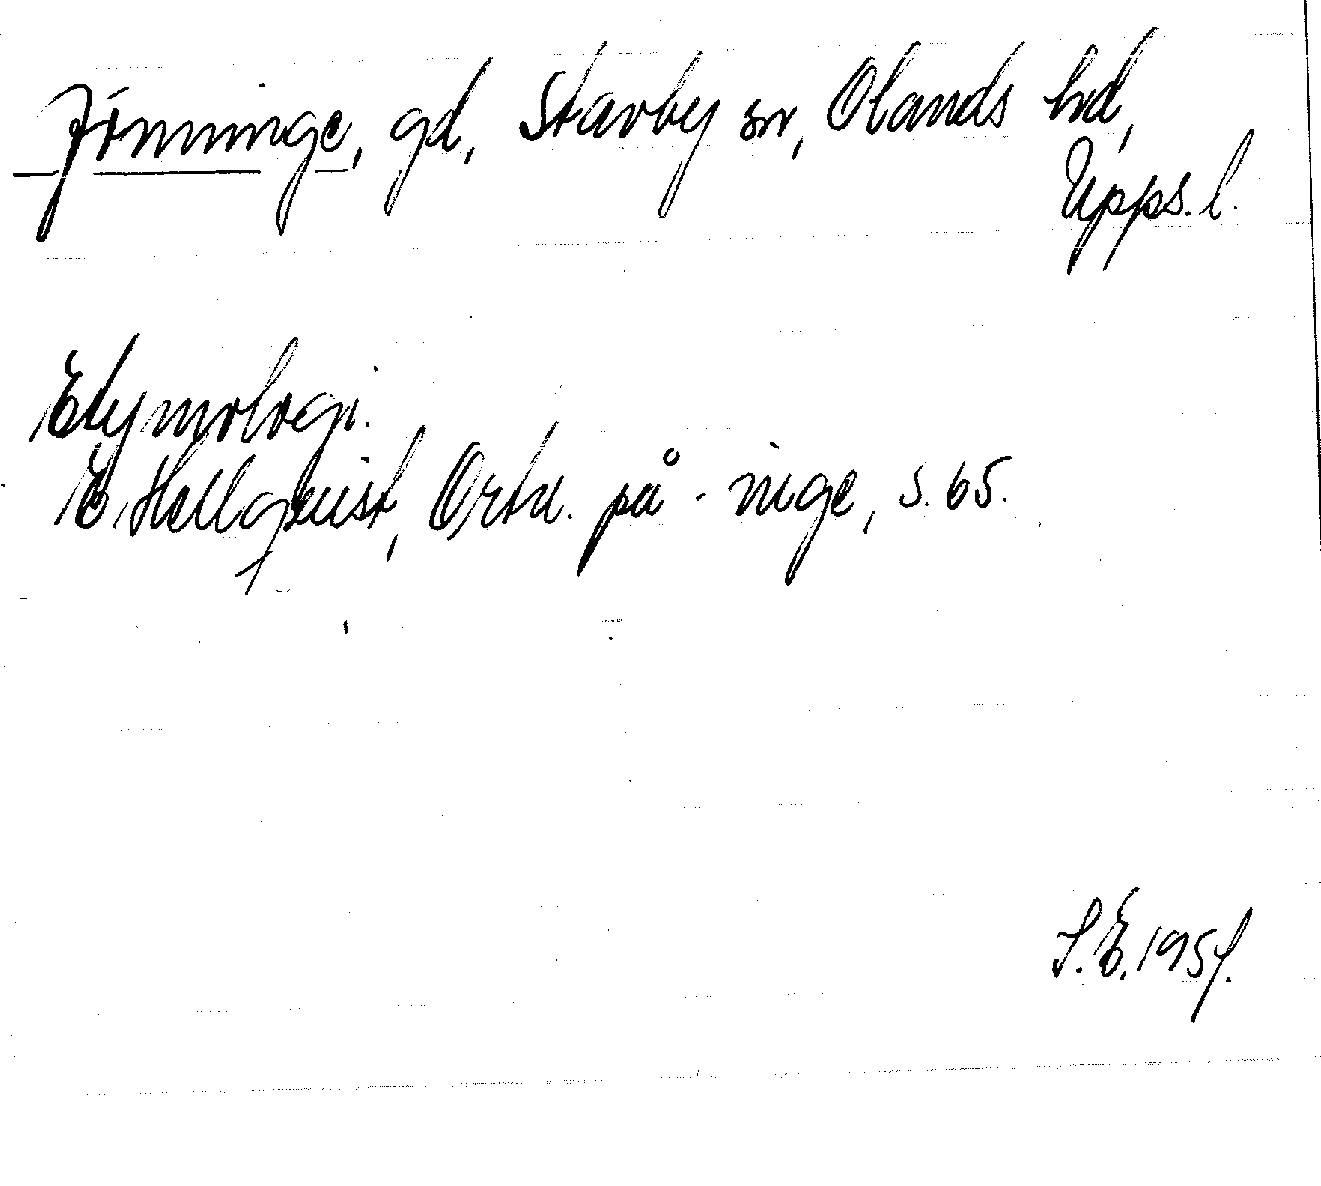 Jönninge, gd, Stavby sn, Olands hd,
Upps. l.
Etymologi.
E. Hellquist, Ortn. på -inge, s. 65.
S. E. 195